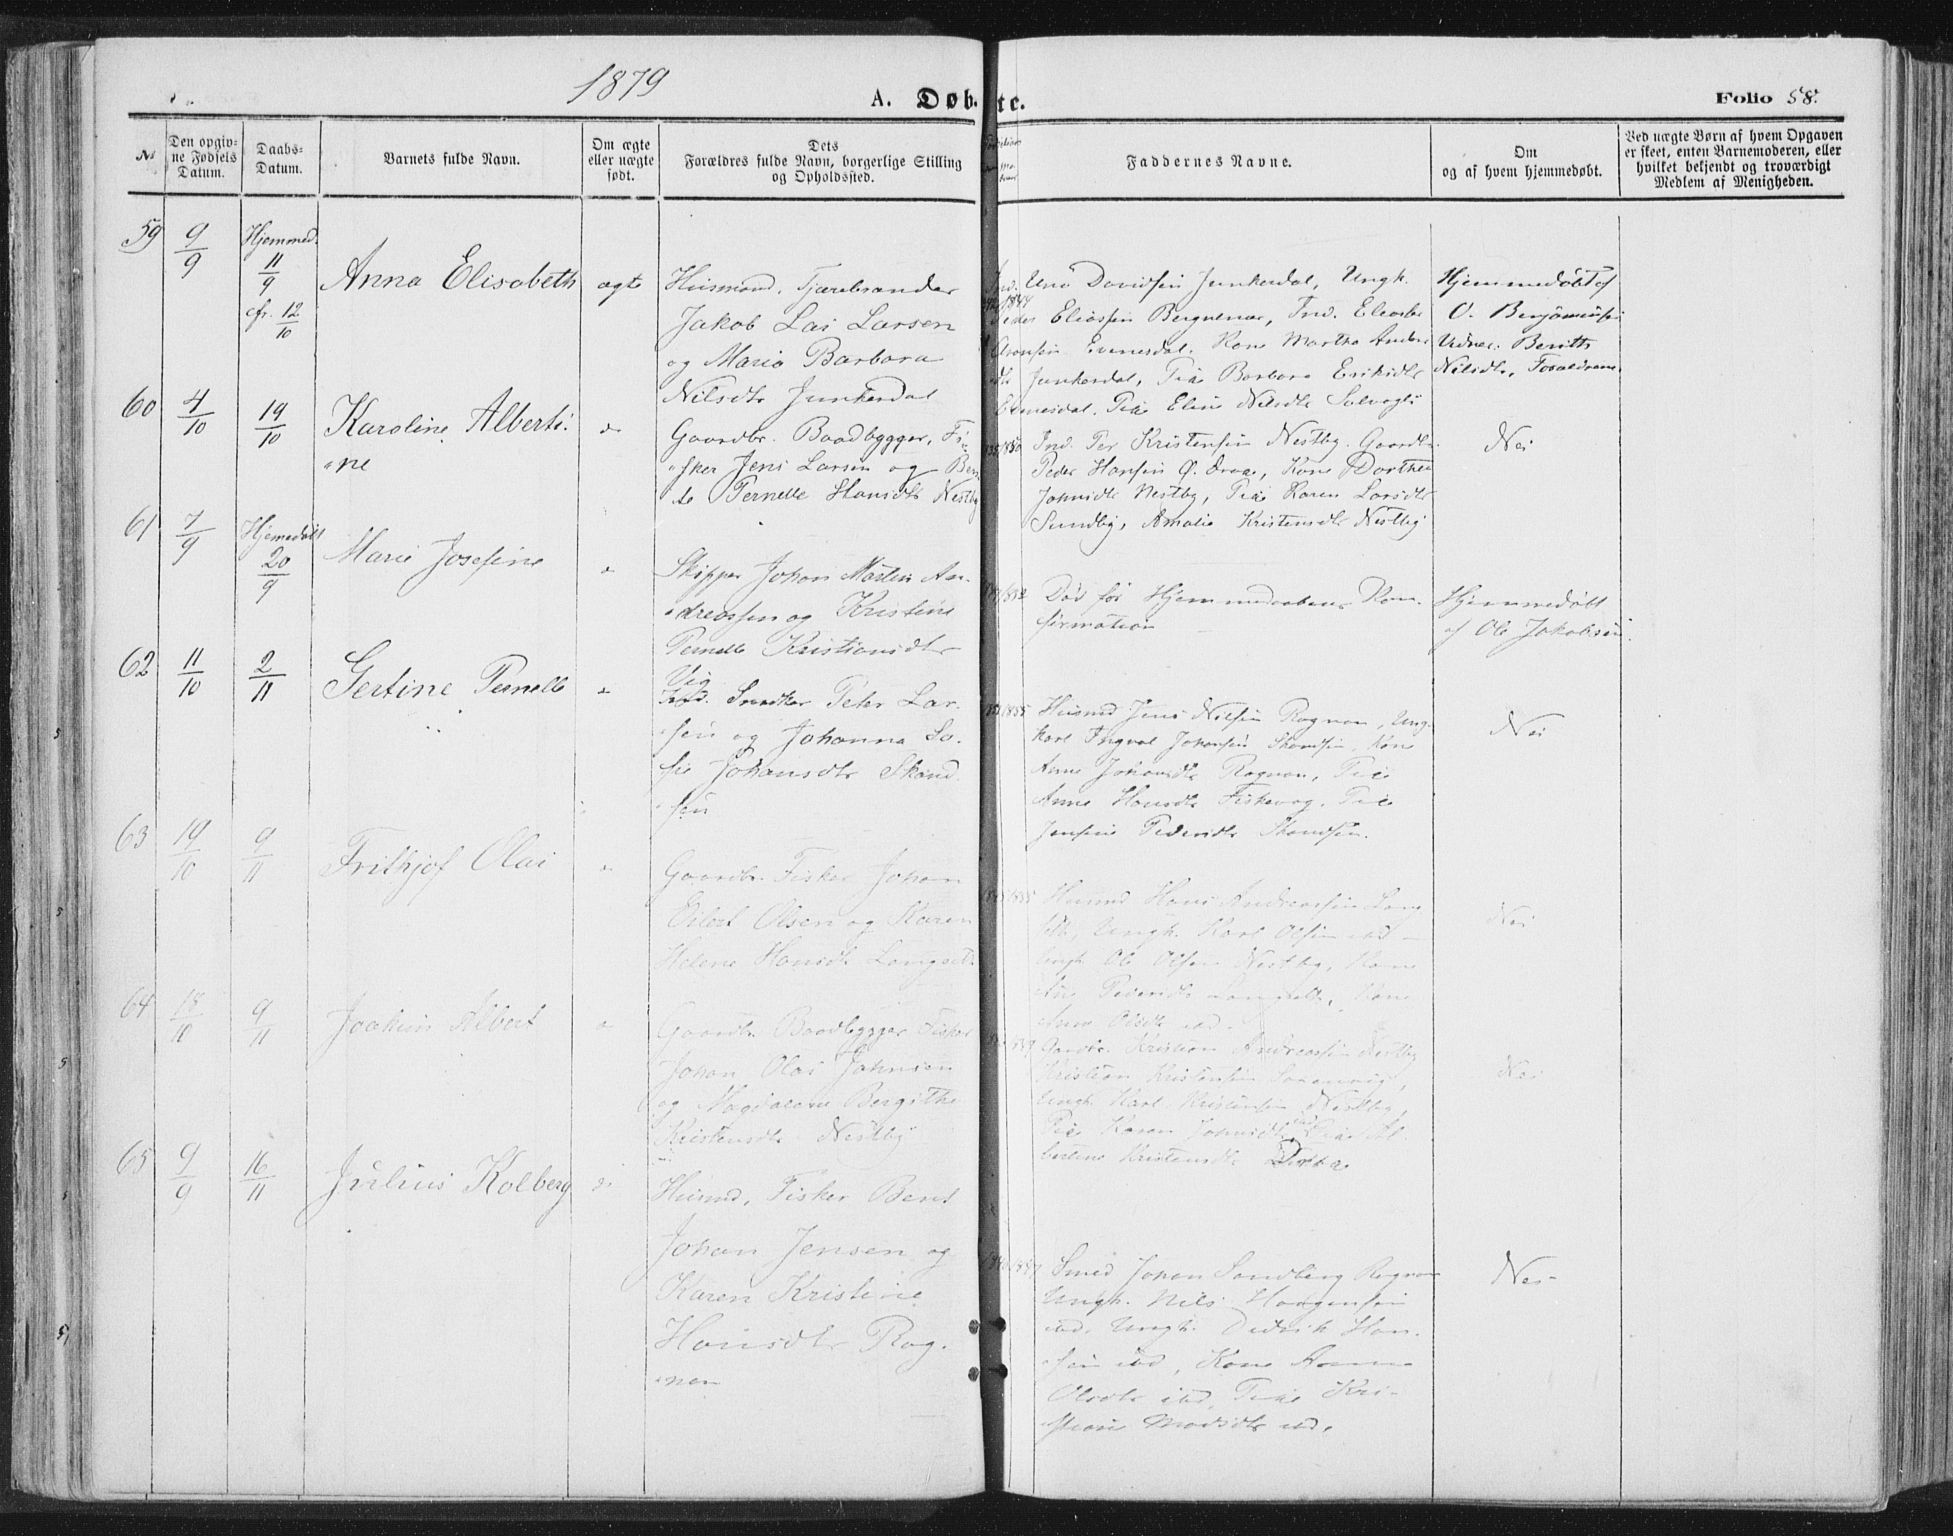 1879
A. Døbte.
Folio 58.
No
Den opgivne Fødsels Datum.
Daabs-Datum.
Barnets fulde Navn.
Om ægte eller uægte født.
Dets Forældres fulde Navn, borgerlige Stilling og Opholdssted.
Faddernes Navne.
Om og af hvem hjemmedøbt.
Ved uægte Børn af hvem Opgaven er skeet, enten Barnemoderen, eller hvilket bekjendt og troværdigt Medlem af Menigheden.
59
9/9
Hjemmed.
11/9
cfr. 12/10
Anna Elisabeth
ægte
Husmand, Tjærebrænder
Jakob Lai Larsen
og Maria Barbara
Nilsdtr Junkerdal
Davidsen Junkerdal, Ungk.
Eliassen Bergnenær, Ind.
Aronsen Evenesdal. Kone Martha
Junkerdal, Pike Barbara Eriksdtr
Pike Eline Nilsdtr
Hjemmedøbt af
O. Benjaminsen
Vidner: Berith
Nilsdtr, Forældrene
60
4/10
19/10
Karoline Alberti-
ne
Gaardbr. Baadbygger, Fi-
sker Jens Larsen og
Pernelle Hansdtr Nestby
Ind. Per Kristensen Nestby. Gaardbr.
Peder Hansen Kone Dorthea
Johnsdtr Nestby, Pike Karen Larsdtr
Sundby, Amalie Kristensdtr Nestby
Nei
61
7/9
Hjemedøbt
20/9
Marie Josefine
Skipper Johan Martin An-
dreassen og Kristine
Pernelle Kristiansdtr
Vig
Død før Hjemmedaabens Kon-
firmation
Hjemmedøbt
af Ole Jakobsen
62
11/10
2/11
Gertine Pernelle
Ind. Snedker Peter Lar-
sen og Johanna So-
fie Johansdtr Skand-
sen
1855
Husmd Jens Nilsen Rognan, Ung-
karl Ingval Johansen Skandsen, Kone
Anne Johansdtr Rognan, Pike
Anne Hansdtr Fiskevag. Pike
Jensine Pedersdtr Skandsen.
Nei
63
19/10
9/11
Frithjof Olai
Gaardbr. Fisker Johan
Eilert Olsen og Karen
Helene Hansdtr Langset
Husmd Hans Andreassen
Ungk. Karl Olsen ibd
Ungk. Ole Olsen Nestby, Kone
Pedersdtr Kone
Anne Olsdtr ibd.
Nei
64
18/10
9/11
Joakim Albert
Gaardbr. Baadbygger Fisker
Johan Olai Johnsen
og Magdalene Bergithe
Kristensdtr Nestby
Gaardbr. Kristian Andreassen Nestby
Kristian Kristensen
Ungk. Karl Kristensen Nestby,
Pike Karen Johnsdtr ibd Pike Al-
bertine Kristensdtr
Nei
65
9/9
16/11
Julius Kolberg
Husmd, Fisker Bent
Johan Jensen og
Karen Kristine
Hansdtr Rog-
nan
Smed Johan Sandberg Rognan
Ungk. Nils Haagensen
ibd. Ungk. Didrik Han-
sen ibd, Kone Anne
Olsdtr ibd, Pike Kri-
stiane Madsdtr ibd.
Nei